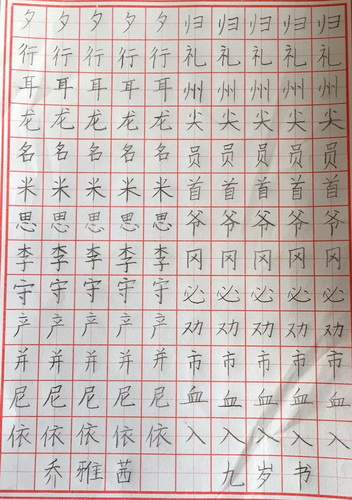 夕夕夕夕夕归归归归归
行行行行行礼礼礼礼礼
耳耳耳耳耳州州州州州
龙龙龙龙龙尖尖尖尖尖
名名名名名员员员员员
米米米米米首首首首首
思思思思思爷爷爷爷爷
李李李李李冈冈冈冈冈
守守守守守必必必必必
产产产产产劝劝劝劝劝
并并并并并市市市市市
尼尼尼尼尼血血血血血
依依依依依入入入入入
乔雅茜 九岁书